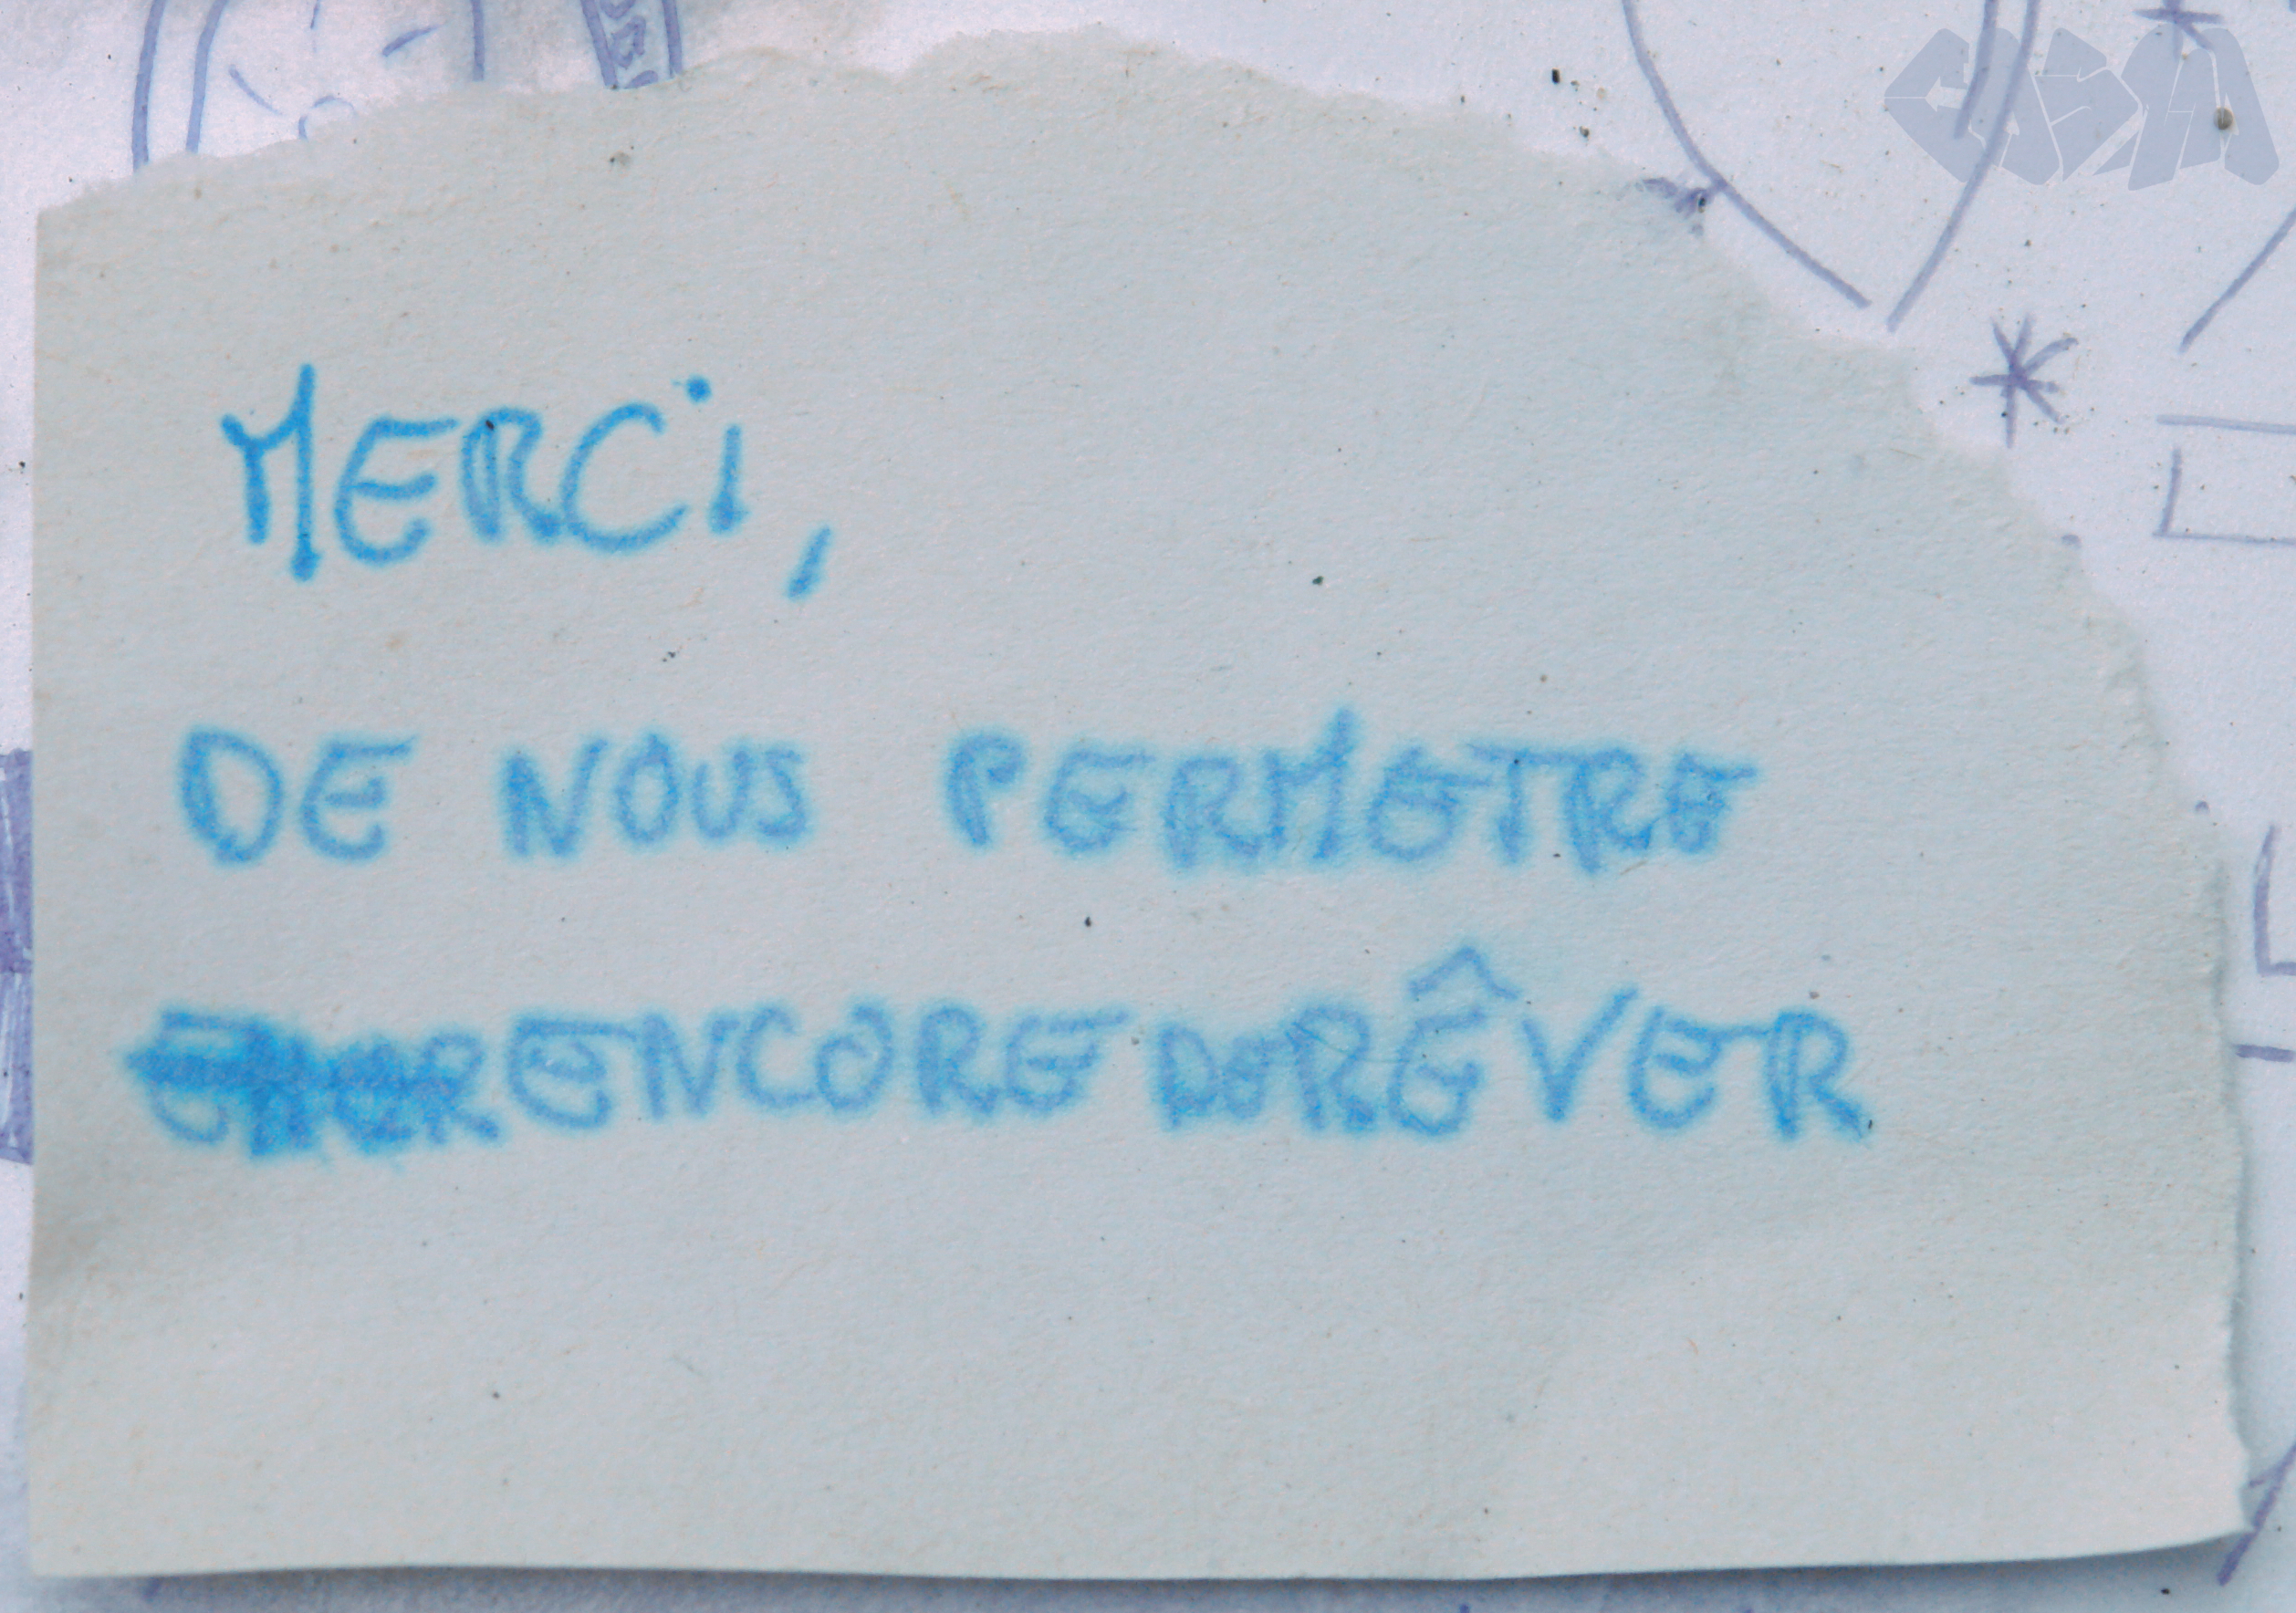 MERCi,
DE NOUS PERMETRE
ENCORE DE RÊVER